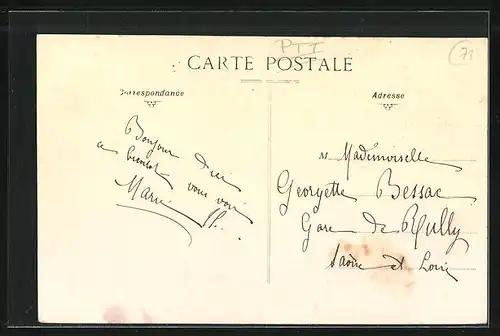 PTT
71
CARTE POSTALE
Correspondance
Adresse
Bonjour d'ici
a bientot vous voir
Marie P...
Mademoiselle
Georgette Bessac
Gare de Rully
Saône et Loire